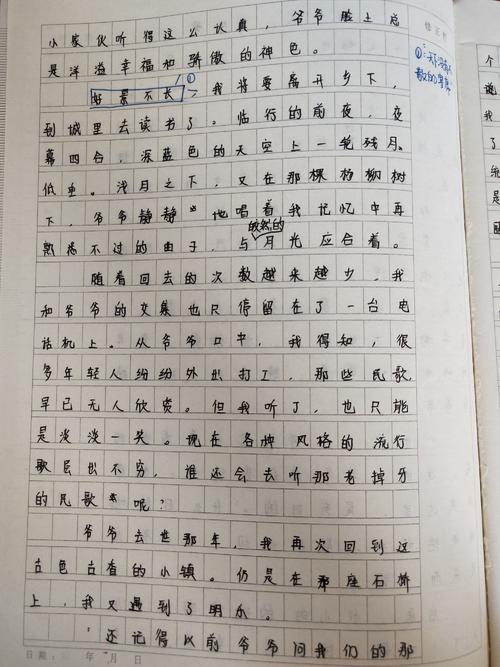 小家伙听得这么认真，爷爷脸上总
是洋溢幸福和骄傲的神色。
①
好景不长，我将要离开乡下，
①：天下没有不
散的宴席
到城里去读书了。临行的前夜，夜
幕四合，深蓝色的天空上一轮残月。
低垂。浅月之下，又在那棵杨柳树
下，爷爷静静地唱着我记忆中再
皎然的
熟悉不过的曲子，与月光应合着。
随着回去的次数越来越少，我
和爷爷的交集也只停留在了一台电
话机上。从爷爷口中，我得知，很
多年轻人纷纷外出打工，那些民歌，
早已无人欣赏。但我听了，也只能
是淡淡一笑。现在各种风格的流行
歌层出不穷，谁还会去听那老掉牙
的民歌呢？
爷爷去世那年，我再次回到这
古色古香的小镇。仍是在那座石桥
上，我又遇到了明尔。
“还记得以前爷爷问我们的那
日期： 年 月 日